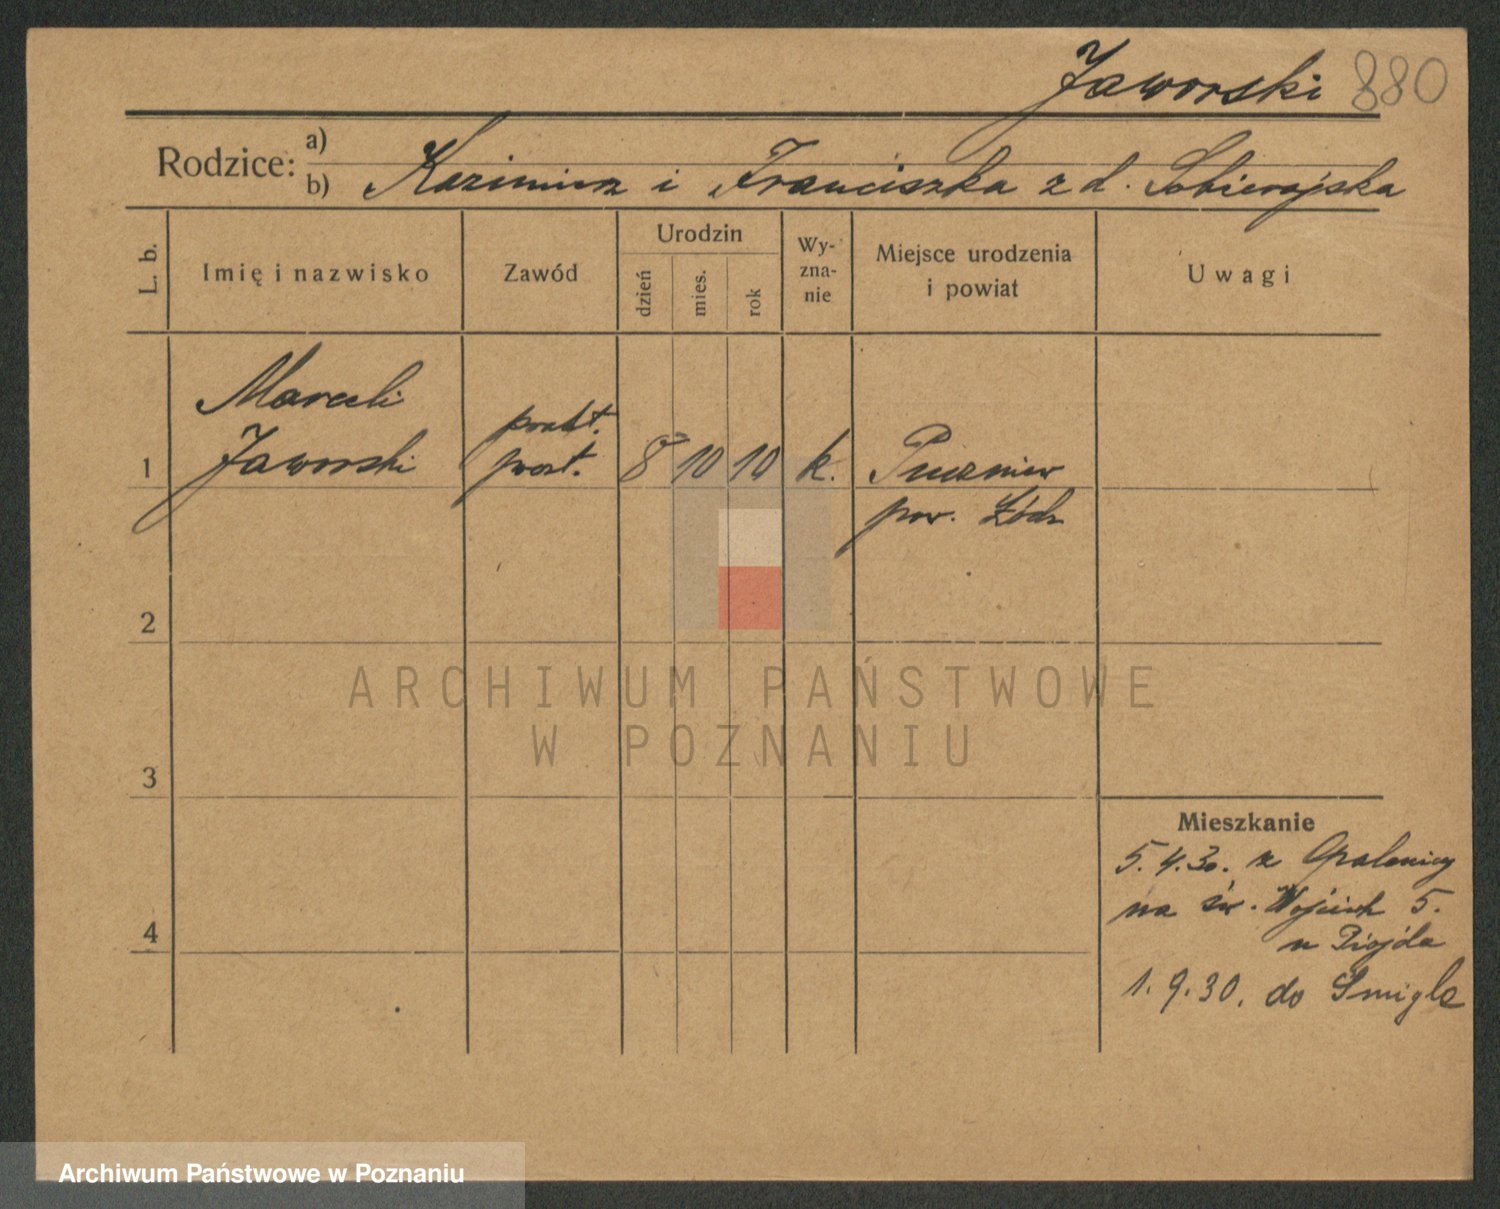 Jaworski 880
Rodzice: a)
b) Kazimierz i Franciszka z d. Sobierajska
L. b.
Imię i nazwisko
Zawód
Urodzin
dzień
mies.
rok
Wy-
zna-
nie
Miejsce urodzenia
i powiat
Uwagi
Marceli
Jaworski
1
prakt.
8 10 10 k.
Puczniew
pow. Łódz
2
ARCHIWUM PAŃSTWOWE
W POZNANIU
3
Mieszkanie
5.4.30. z Opalenicy
na św. Wojciech 5.
4
1.9.30. do Śmigla
Archiwum Państwowe w Poznaniu